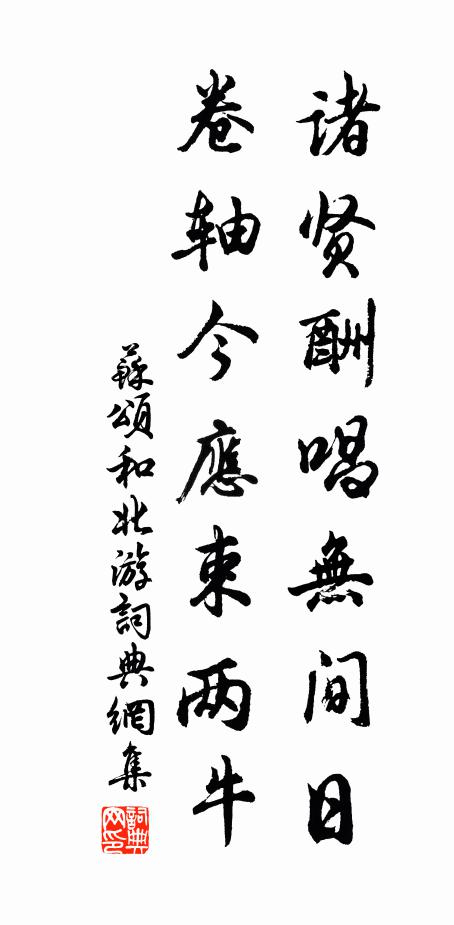 諸贤酬唱無间日
卷轴今應束两牛
蘇頌和北游詞典網集
詞典网印